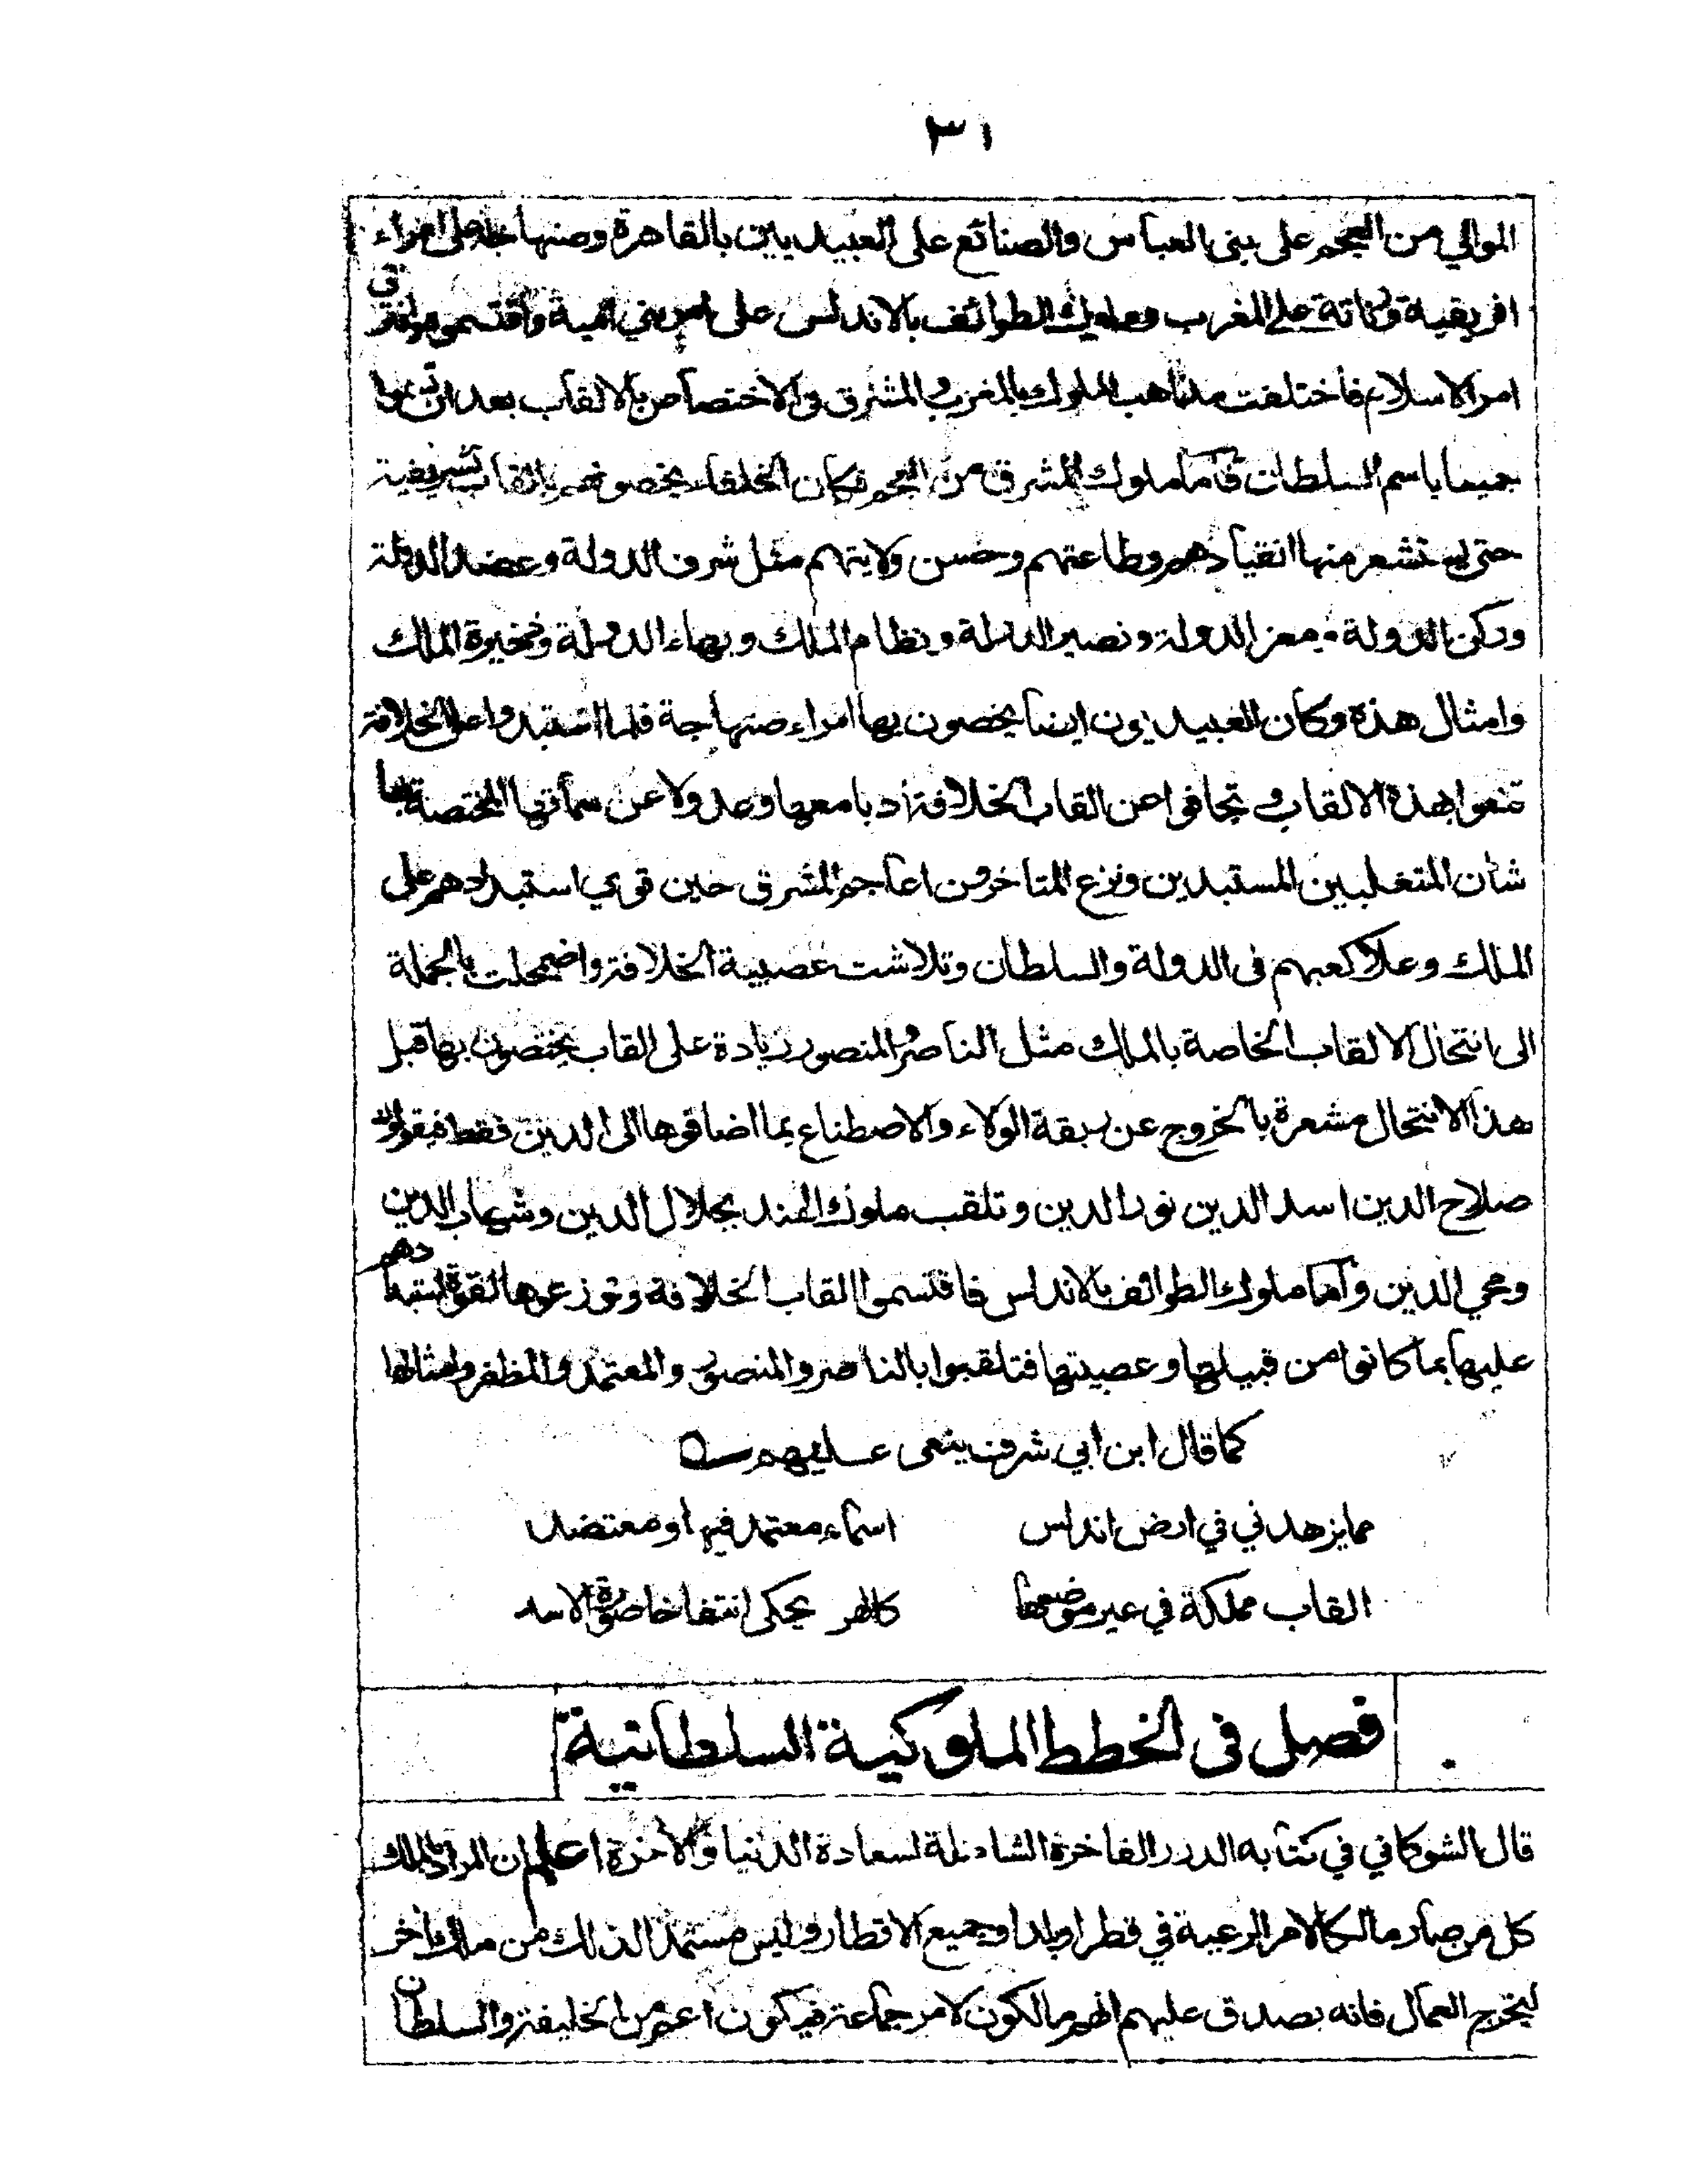 ٣١
الموالي من العجم على بنى العباس والصنائع على العبيديين بالقاهرة وصنهاجة على امراء
افريقية وزناتة على المغرب وملوك الطوائف بالاندلس على امر بني امية واقتسموه وافترق
امر الاسلام فاختلفت مذاهب الملوك بالمغرب والمشرق في الاختصاص بالالقاب بعد ان تسموا
جميعا باسم السلطان فاما ملوك المشرق من العجم فكان الخلفاء يخصونهم بالقاب تشريفية
حتى يستشعر منها انقيادهم وطاعتهم وحسن ولايتهم مثل شرف الدولة وعضد الدولة
وركن الدولة ومعز الدولة ونصير الدولة ونظام الملك وبهاء الدولة وذخيرة الملك
وامثال هذه وكان العبيديون ايضا يخصون بها امراء صنهاجة فلما استبدوا على الخلافة
قنعوا بهذه الالقاب وتجافوا عن القاب الخلافة ادبا معها وعدولا عن سماتها المختصة بها
شان المتغلبين المستبدين ونزع المتاخرون اعاجم المشرق حين قوي استبدادهم على
الملك وعلا كعبهم فى الدولة والسلطان وتلاشت عصبية الخلافة واضمحلت بالجملة
الى انتحال الالقاب الخاصة بالملك مثل الناصر والمنصور زيادة على القاب يختصون بها قبل
هذا الانتحال مشعرة بالخروج عن ربقة الولاء والاصطناع بما اضافوها الى الدين فقط فيقولون
صلاح الدين اسد الدين نور الدين وتلقب ملوك الهند بجلال الدين وشهاب الدين
ومحي الدين واما ملوك الطوائف بالاندلس فاقتسموا القاب الخلافة وتوزعوها لقوة استبدادهم
عليها بما كانوا من قبيلها وعصبيتها فتلقبوا بالناصر والمنصور والمعتمد والمظفر وامثالها
كما قال ابن ابي شرف ينعى عليهم
مما يزهدني في ارض اندلس اسماء معتمد فيها ومعتضد
القاب مملكة في غير موضعها كالهر يحكي انتفاخا صورة الاسد
فصل فى الخطط الملوكية السلطانية
قال الشوكاني في كتابه الدرر الفاخرة الشاملة لسعادة الدنيا والآخرة اعلم ان المراد بالملك
كل من صار مالكا لامر الرعية في قطر او بلد او جميع الاقطار وليس مستمدا لذلك من ملك آخر
ليخرج العمال فانه يصدق عليهم انهم مالكون لامر جماعة فيكون اعم من الخليفة والسلطان